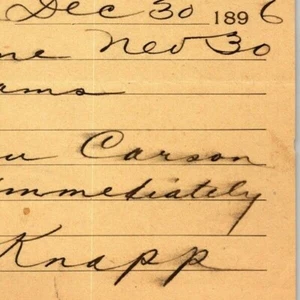 Dec 30 1896
ne Nev 30
ams
u Carson
immediately
Knapp